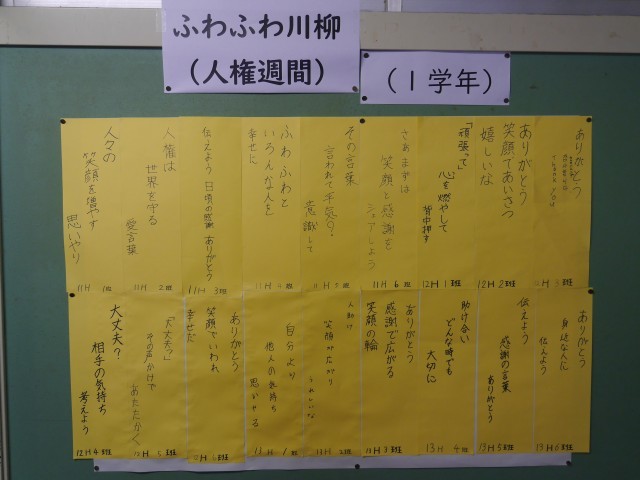 ふわふわ川柳
（人権週間）
（１学年）
人々の
笑顔を増やす
思いやり
11H 1班
人権は
世界を守る
愛言葉
11H 2班
伝えよう
日頃の感謝
ありがとう
11H 3班
ふわふわと
いろんな人を
幸せに
11H 4班
その言葉
言われて本気？
意識して
11H 5班
さあまずは
笑顔と感謝を
シェアしよう
11H 6班
「頑張って」
心を燃やして
背中押す
12H 1班
ありがとう
笑顔であいさつ
嬉しいな
12H 2班
ありがとう
大丈夫？
相手の気持ち
考えよう
12H 4班
「大丈夫？」
その声かけで
あたたかく
12H 5班
ありがとう
笑顔でいわれ
幸せだ
12H 6班
自分より
他人の気持ち
思いやる
13H 1班
人助け
笑顔が広がり
うれしいな
13H 2班
ありがとう
感謝で広がる
笑顔の輪
13H 3班
助け合い
どんな時でも
大切に
13H 4班
伝えよう
感謝の言葉
ありがとう
13H 5班
ありがとう
身近な人に
伝えよう
13H 6班